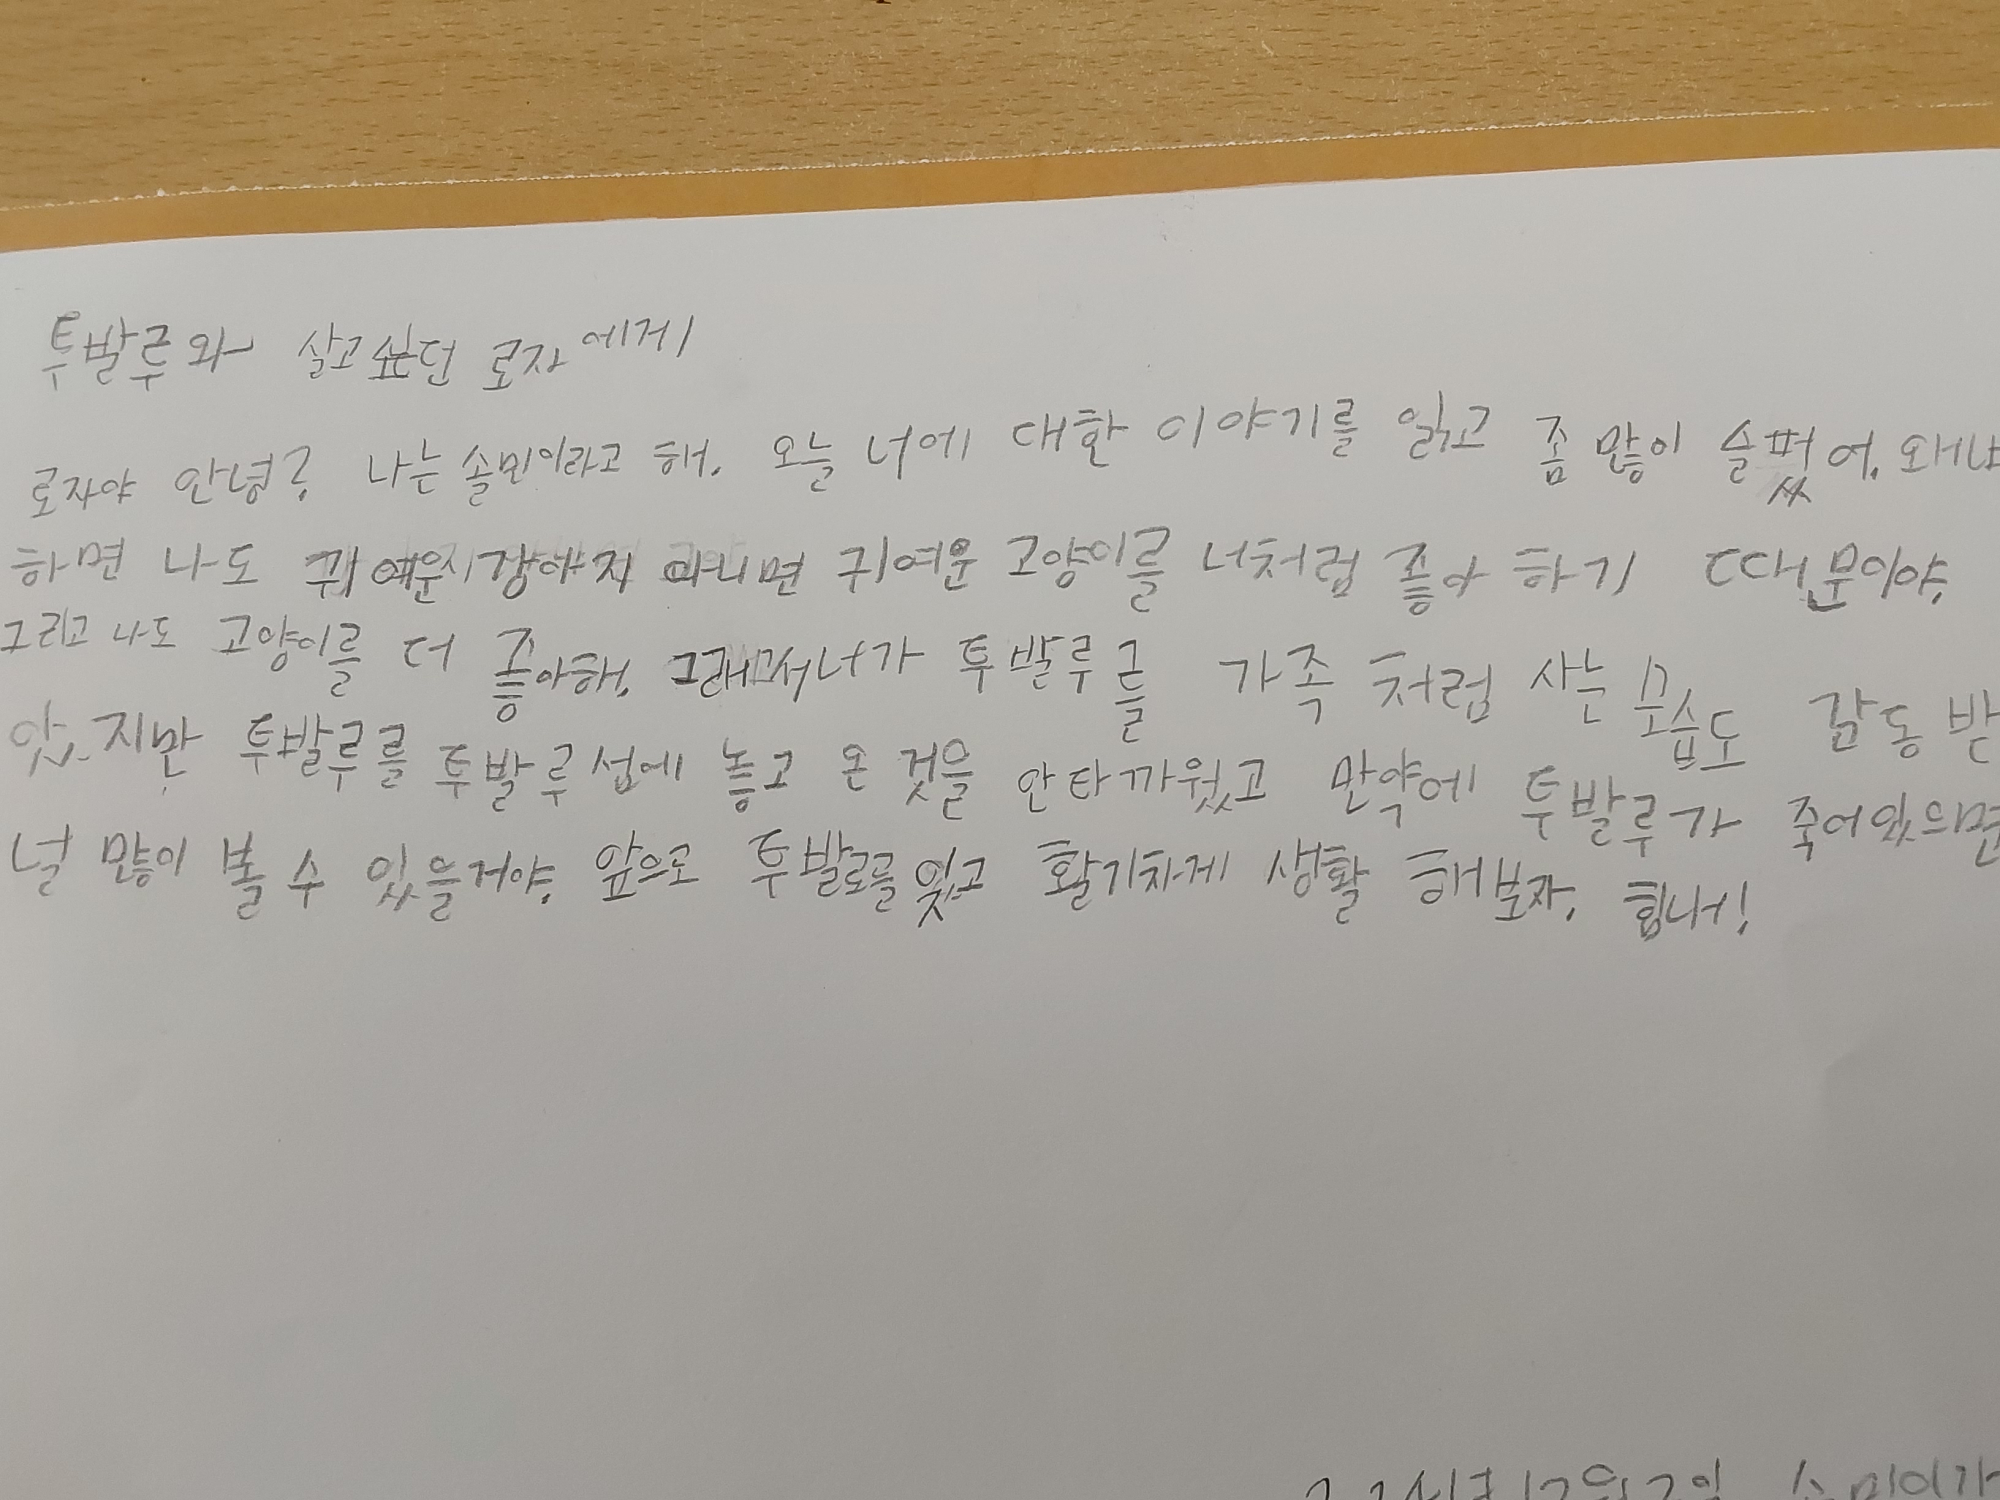 투발루와 살고싶던 로자에게
로자야 안녕? 나는 솔민이라고 해. 오늘 너에 대한 이야기를 읽고 좀 많이 슬펐어. 왜냐
하면 나도 귀여운 강아지 아니면 귀여운 고양이를 너처럼 좋아하기 때문이야.
그리고 나도 고양이를 더 좋아해. 그래서 너가 투발루를 가족 처럼 사는 모습도 감동 받
았지만 투발루를 투발루섬에 놓고 온 것을 안타까웠고 만약에 투발루가 죽어있으면
널 많이 볼 수 있을거야. 앞으로 투발로를 잊고 활기차게 생활 해보자. 힘내!